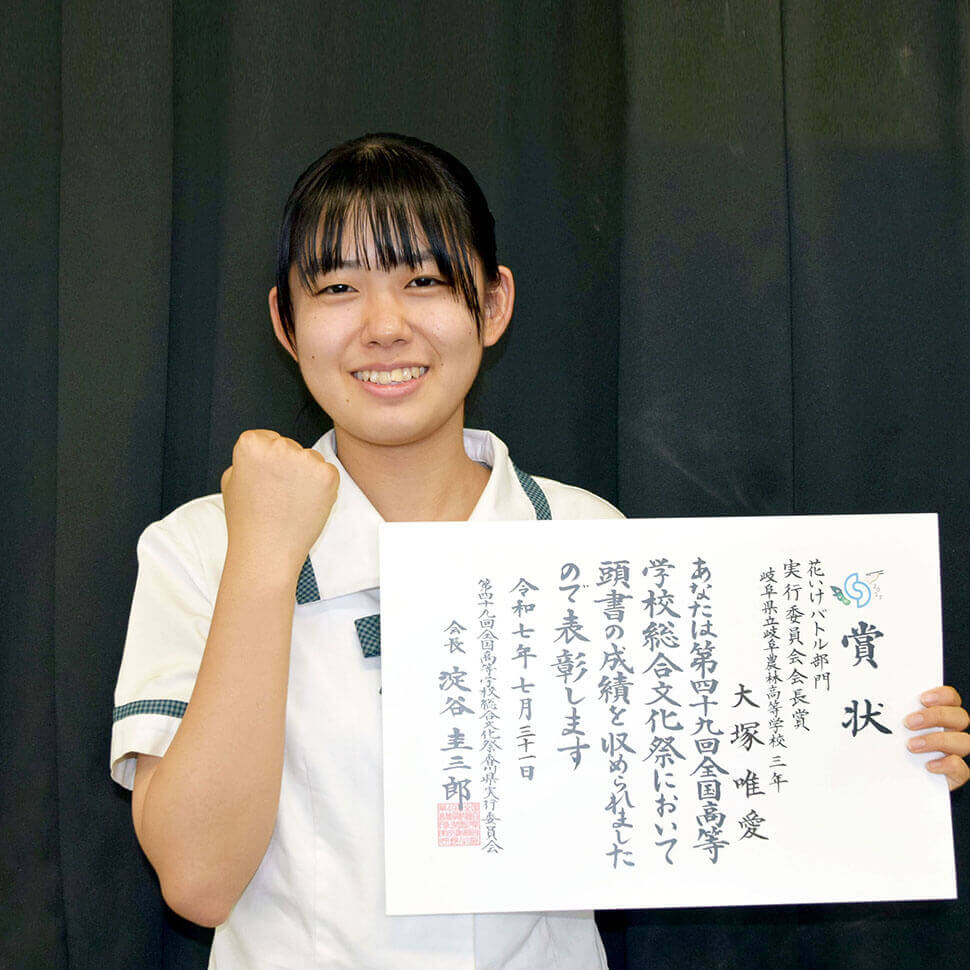 賞状
花いけバトル部門
実行委員会会長賞
岐阜県立岐阜農林高等学校 三年
大塚 唯愛
あなたは第四十九回全国高等
学校総合文化祭において
頭書の成績を収められました
ので表彰します
令和七年七月三十一日
第四十九回全国高等学校総合文化祭香川県実行委員会
会長 淀谷 圭三郎